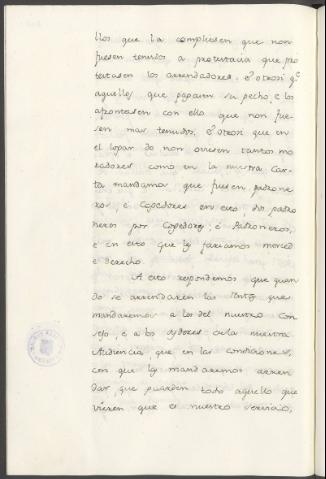 llos que la compliesen que non
fuesen tenudos a protestacia que pro
testasen los arrendadores. E otrosi q.e
aquellos que pagaren su pecho, e los
afrontasen con ello que non fue-
sen mas tenudos. E otrosi que en
el logar do non oviesen tantos mo
radores como en la nuestra Car-
ta mandamos, que fuesen padrone
ros, e Cogedores en esto, dos padro
neros por Cogedores, e Padroneros,
e en esto que les fariamos merced
e derecho.
A esto respondemos que quan
do se arrendaren las rentas que
mandaremos a los del nuestro Con
sejo, e a los oydores de la nuestra
Audiencia, que en las condiciones,
con que las mandaremos arren
dar que guarden todo aquello que
vieren que es nuestro servicio,